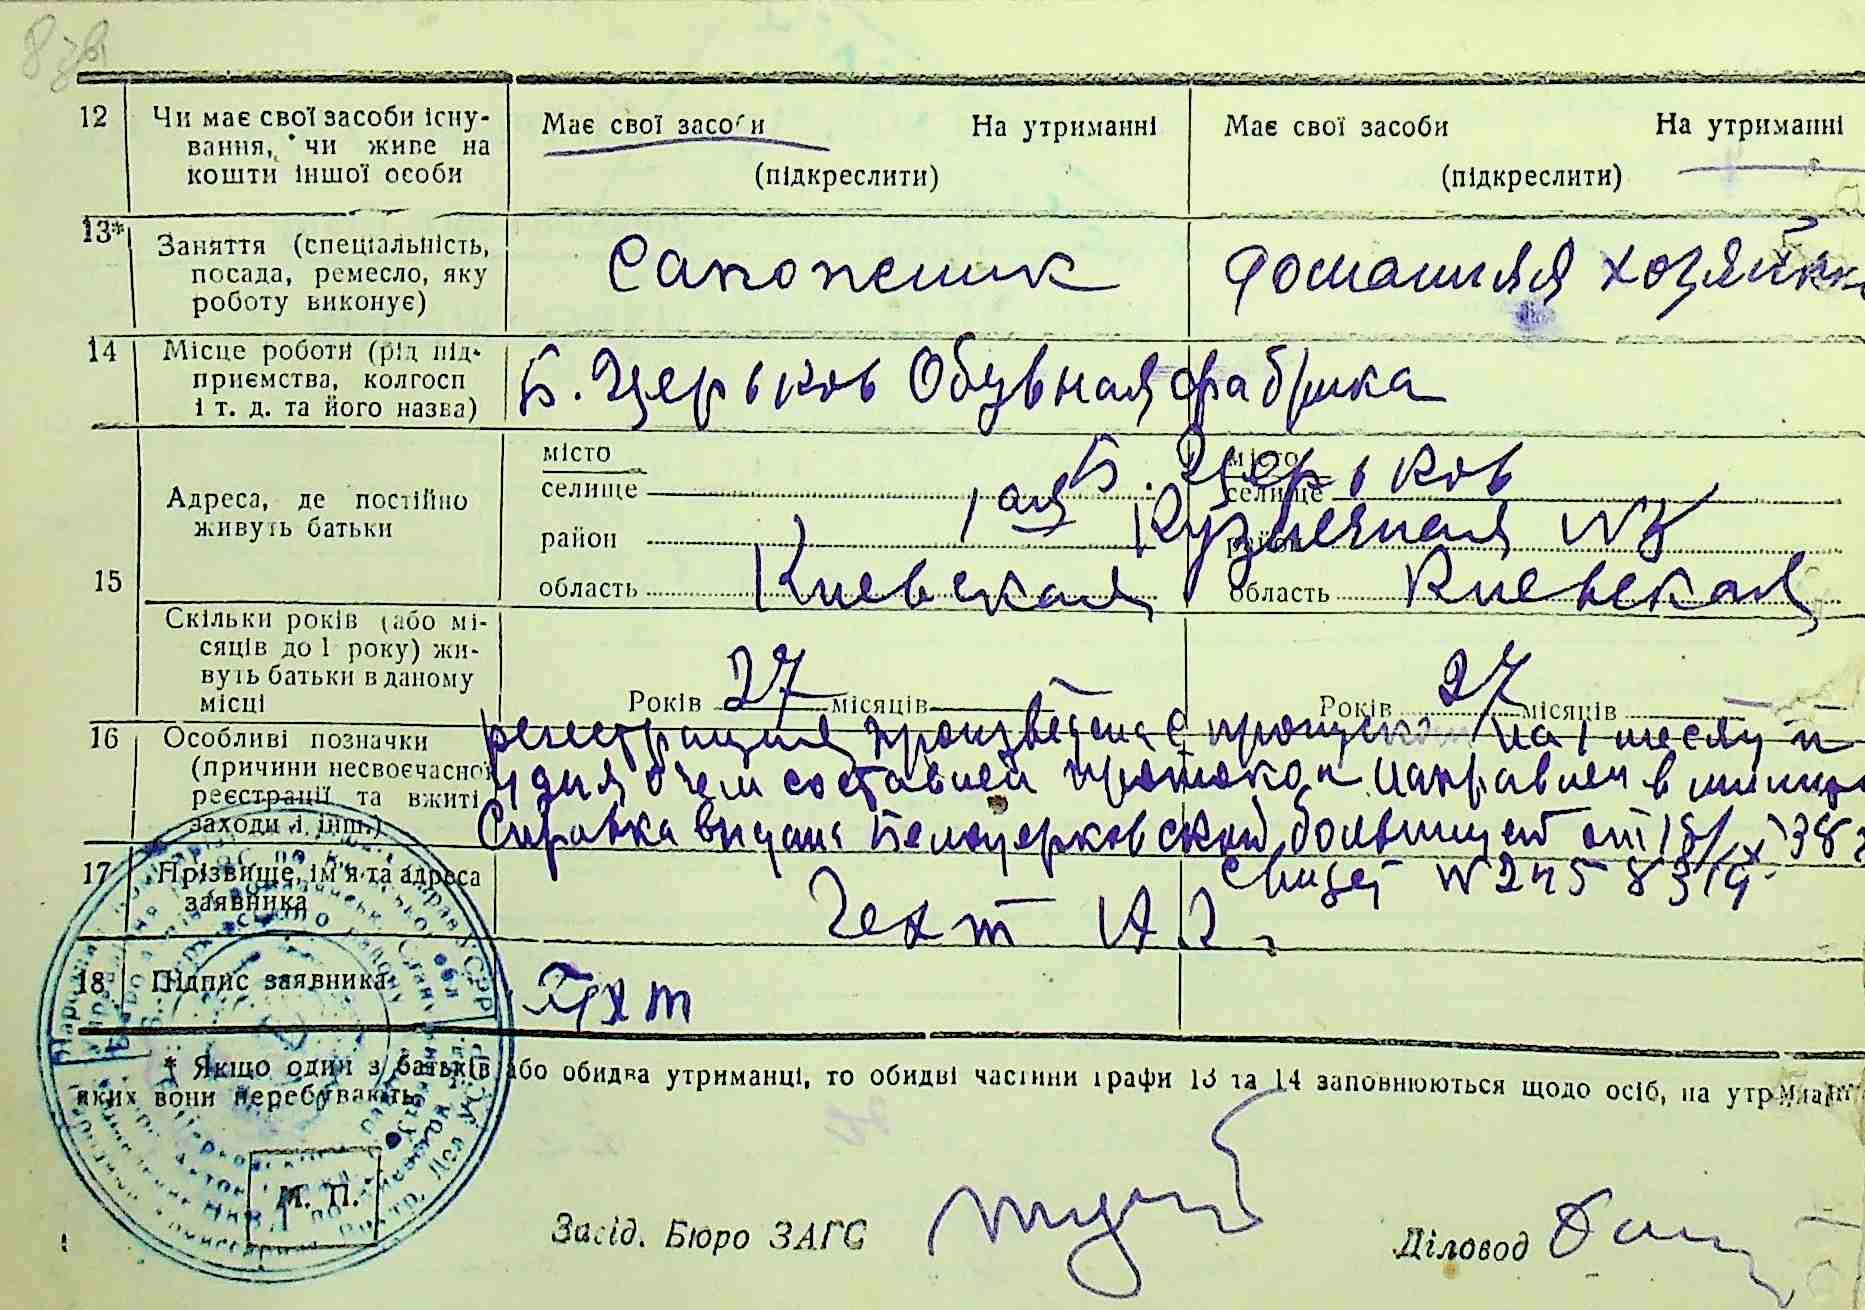 12 Чи має свої засоби існу- Має свої засоби На утриманні Має свої засоби На утриманні
вання, чи живе на
кошти іншої особи (підкреслити) (підкреслити)
13* Заняття (спеціальність, Сапожник домашняя хозяйка
посада, ремесло, яку
роботу виконує)
14 Місце роботи (рід під-
приємства, колгосп Б. Церьков Обувная фабрика
і т. д. та його назва)
15 Адреса, де постійно
живуть батьки
місто місто Б. Церьков
селище селище
район 1ая Кузнечная район №
область Киевская область Киевская
Скільки років (або мі-
сяців до 1 року) жи-
вуть батьки в даному
місці Років 27 місяців Років 27 місяців
16 Особливі позначки регистрация произведена с пропуском на 1 месяц и
(причини несвоєчасної дня о чем составлен протокол и направлен в
реєстрації та вжиті
заходи і інш.) Справка выдана Белоцерковской больницей от 15/X 38
17 Прізвище, ім'я та адреса
заявника Гехт И
18 Підпис заявника Гехт
* Якщо один з батьків або обидва утриманці, то обидві частини графи 13 та 14 заповнюються щодо осіб, на утриманні
яких вони перебувають.
М. П.
Засід. Бюро ЗАГС Діловод